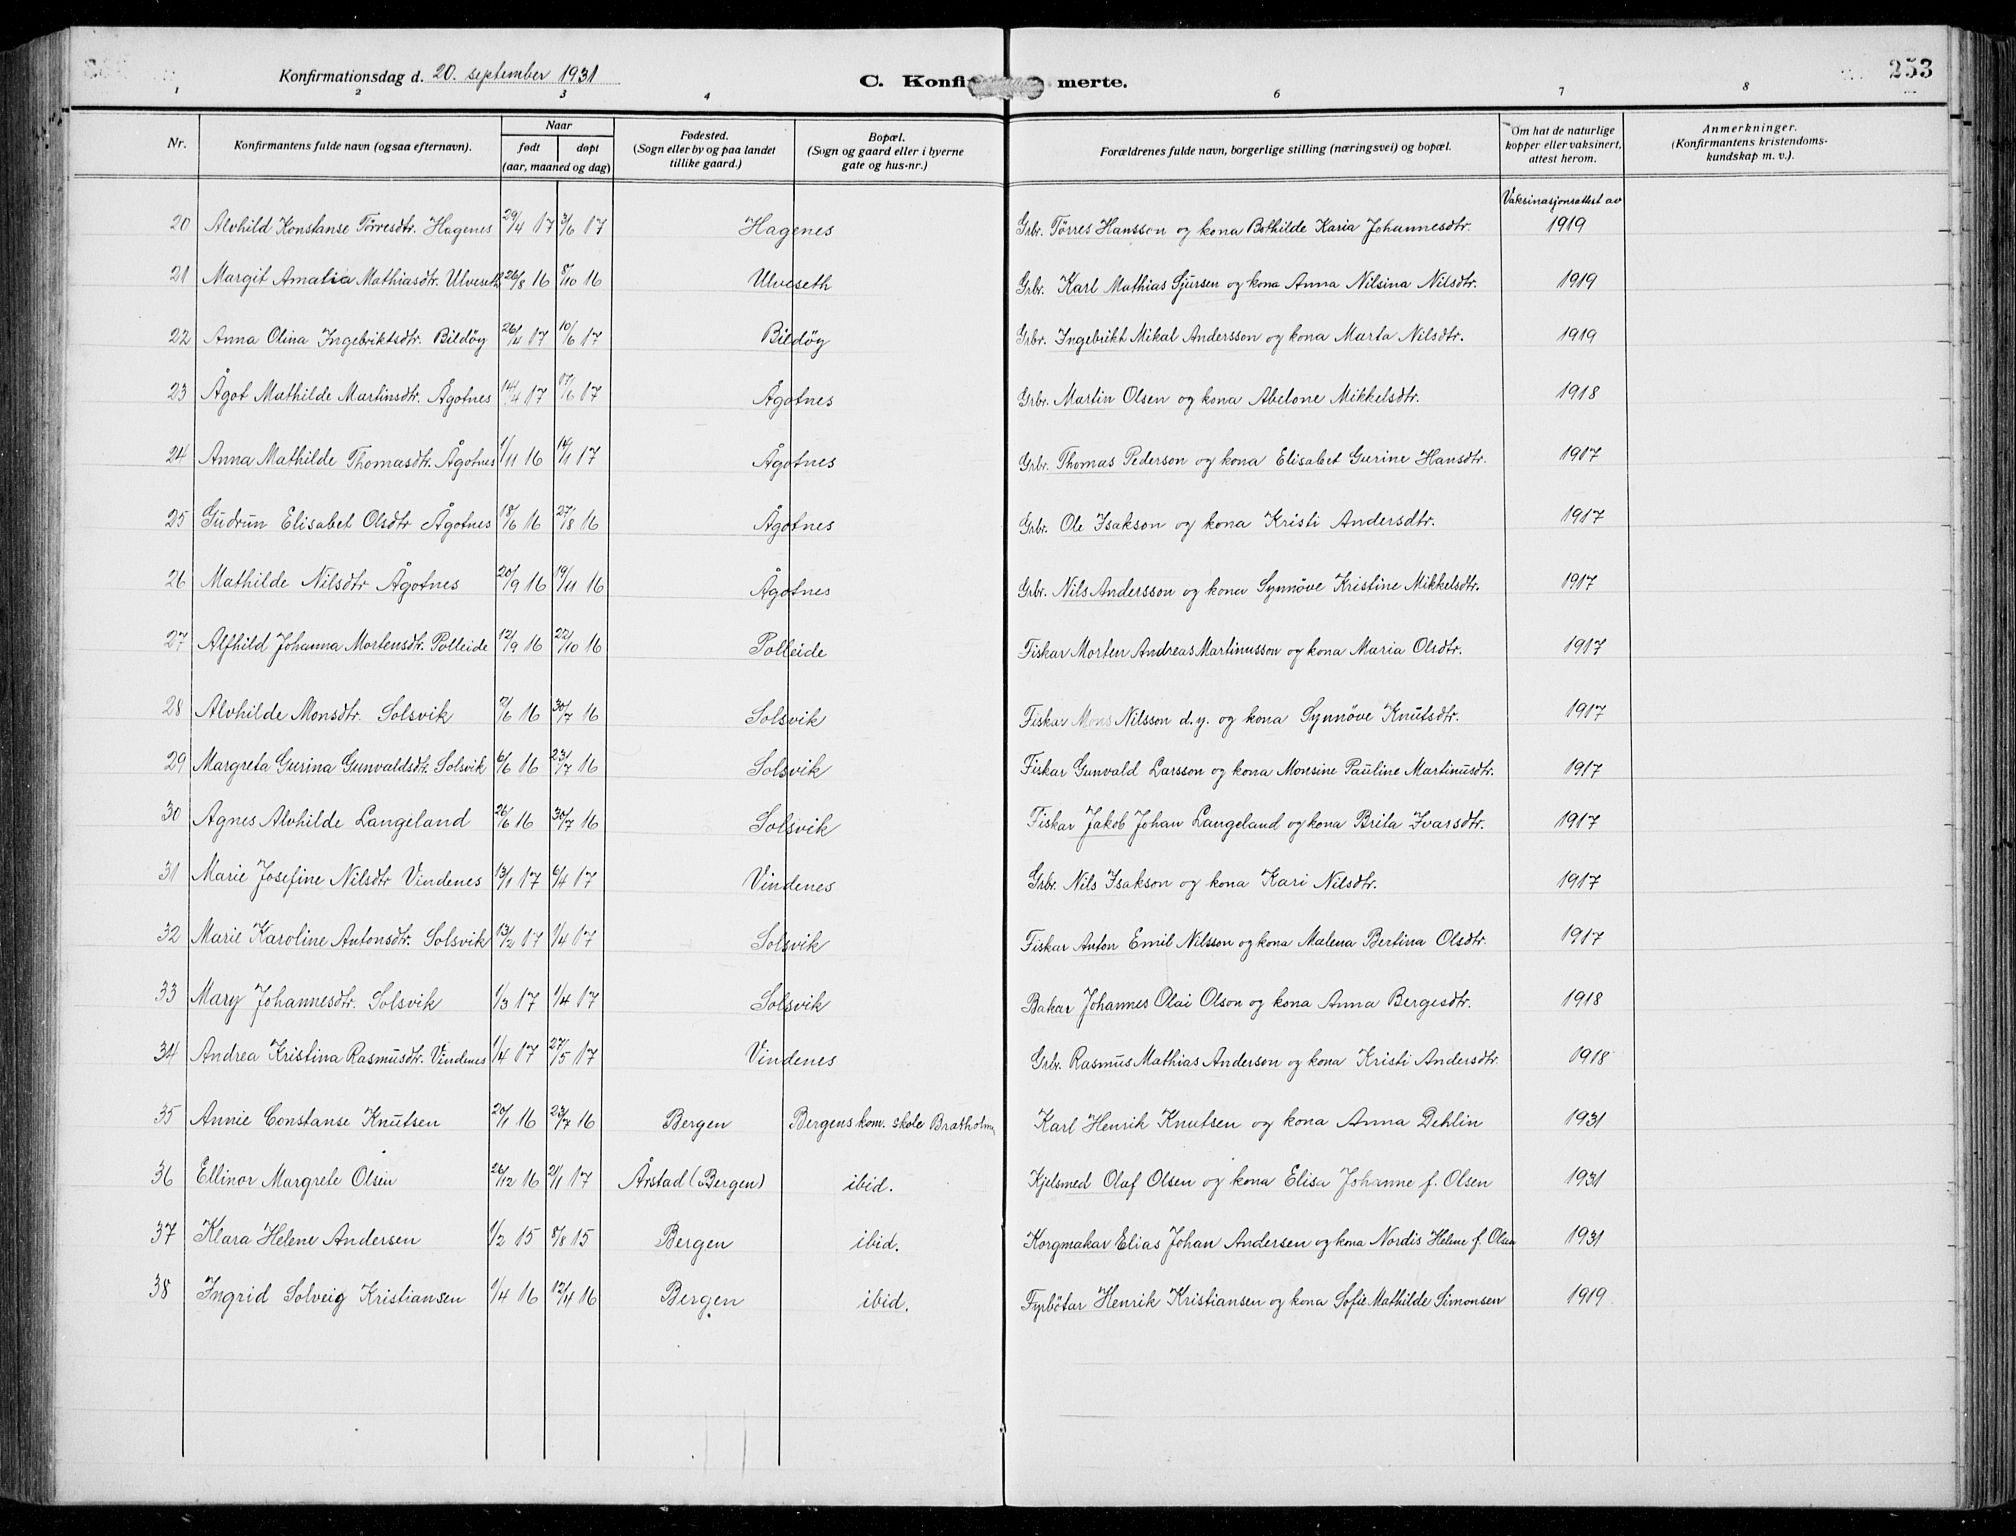 Konfirmationsdag d. 20. september 1931 C. Konfirmerte. 253
1 2 3 4 6 7 8
Nr. Konfirmantens fulde navn (ogsaa efternavn). Naar født døpt (aar, maaned og dag) Fødested. (Sogn eller by og paa landet tillike gaard.) Bopæl. (Sogn og gaard eller i byerne gate og hus-nr.) Forældrenes fulde navn, borgerlige stilling (næringsvei) og bopæl. Om hat de naturlige kopper eller vaksinert, attest herom. Anmerkninger. (Konfirmantens kristendomskundskap m. v.).
Vaksinasjonsattest av
20 Alvhild Konstanse Tørresdtr. Hagenes 29/4 17 3/6 17 Hagenes Grbr. Tørres Hansson og kona Bothilde Karia Johannesdtr. 1919
21 Margit Amalia Mathiasdtr. Ulveseth 26/8 16 8/10 16 Ulveseth Grbr. Karl Mathias Sjursen og kona Anna Nilsina Nilsdtr. 1919
22 Anna Olina Ingebriktsdtr. Bildøy 26/4 17 10/6 17 Bildøy Grbr. Ingebrikt Mikal Andersson og kona Marta Nilsdtr. 1919
23 Ågot Mathilde Martinsdtr. Ågotnes 14/4 17 17/6 17 Ågotnes Grbr. Martin Olsen og kona Abelone Mikkelsdtr. 1918
24 Anna Mathilde Thomasdtr. Ågotnes 1/11 16 14/1 17 Ågotnes Grbr. Thomas Pederson og kona Elisabet Gurine Hansdtr. 1917
25 Gudrun Elisabet Olsdtr Ågotnes 18/6 16 27/8 16 Ågotnes Grbr. Ole Isakson og kona Kristi Andersdtr. 1917
26 Mathilde Nilsdtr Ågotnes 20/9 16 19/11 16 Ågotnes Grbr. Nils Andersson og kona Synnöve Kristine Mikkelsdtr. 1917
27 Alfhild Johanna Mortensdtr. Polleide 12/9 16 22/10 16 Polleide Fiskar Morten Andreas Martinusson og kona Maria Olsdtr. 1917
28 Alvhilde Monsdtr. Solsvik 7/6 16 30/7 16 Solsvik Fiskar Mons Nilsson d.y. og kona Synnöve Knutsdtr. 1917
29 Margreta Gurina Gunvaldsdtr. Solsvik 6/6 16 23/7 16 Solsvik Fiskar Gunvald Larsson og kona Monsine Pauline Martinusdtr. 1917
30 Agnes Alvhilde Langeland 26/6 16 30/7 16 Solsvik Fiskar Jakob Johan Langeland og kona Brita Ivarsdtr. 1917
31 Marie Josefine Nilsdtr Vindenes 13/1 17 6/4 17 Vindenes Grbr. Nils Isakson og kona Kari Nilsdtr. 1917
32 Marie Karoline Antonsdtr. Solsvik 13/2 17 1/4 17 Solsvik Fiskar Anton Emil Nilsson og kona Malena Bertina Olsdtr. 1917
33 Mary Johannesdtr. Solsvik 1/3 17 1/4 17 Solsvik Bakar Johannes Olai Olson og kona Anna Bergesdtr. 1918
34 Andrea Kristina Rasmusdtr. Vindenes 1/4 17 27/5 17 Vindenes Grbr. Rasmus Mathias Anderson og kona Kristi Andersdtr 1918
35 Annie Constanse Knutsen 20/1 16 23/7 16 Bergen Bergens kom. skole Bratholmen Karl Henrik Knutsen og kona Anna Dehlin 1931
36 Ellinor Margrete Olsen 26/12 16 21/1 17 Årstad (Bergen) ibid. Kjelsmed Olaf Olsen og kona Elisa Johanne f. Olsen 1931
37 Klara Helene Andersen 1/2 15 8/8 15 Bergen ibid. Korgmakar Elias Johan Andersen og kona Nordis Helene f. Olsen 1931
38 Ingrid Solveig Kristiansen 1/4 16 12/4 16 Bergen ibid. Fyrbötar Henrik Kristiansen og kona Sofie Mathilde Simonsen 1919